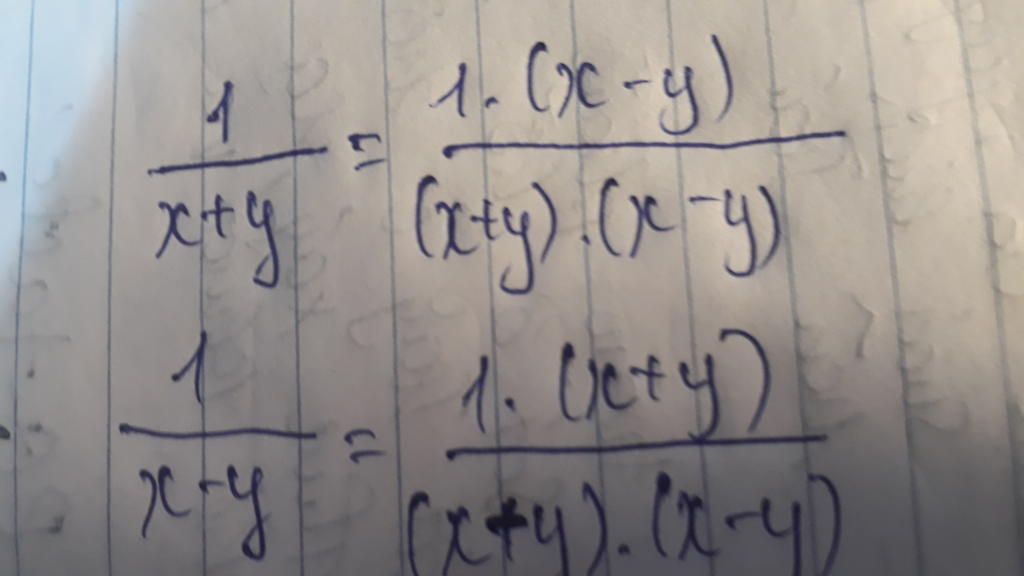 1/(x+y) = 1.(x-y)/(x+y).(x-y)
1/(x-y) = 1.(x+y)/(x+y).(x-y)